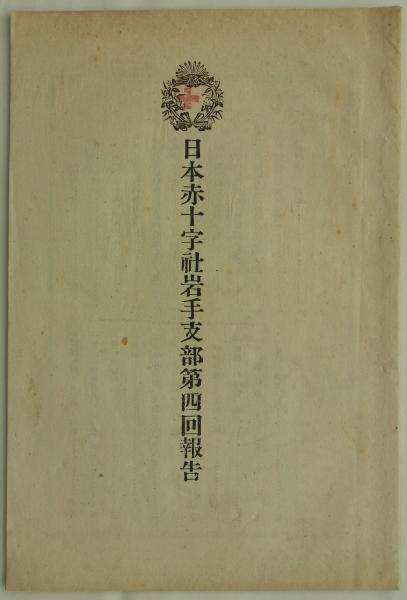 日本赤十字社岩手支部第四回報告